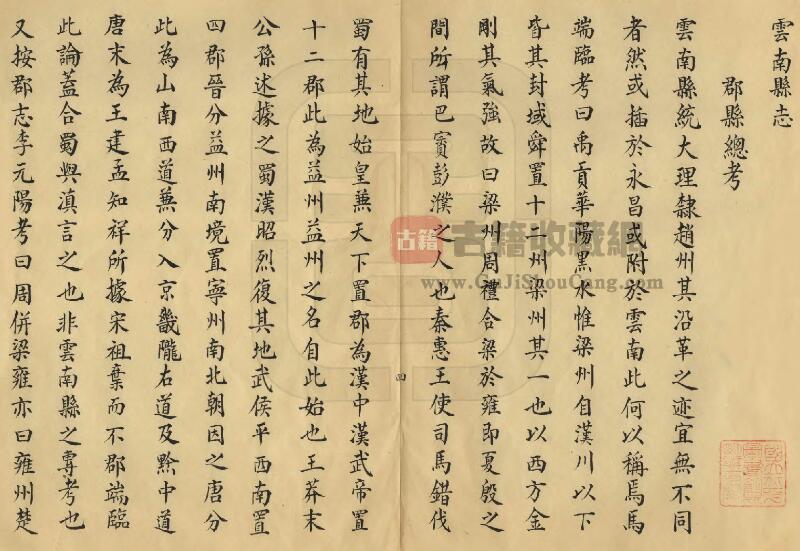 雲南縣志
郡縣總考
雲南縣統大理隸趙州其沿革之迹宜無不同
者然或插於永昌或附於雲南此何以稱焉馬
端臨考曰禹貢華陽黑水惟梁州自漢川以下
皆其封域舜置十二州梁州其一也以西方金
剛其氣強故曰梁州周禮合梁於雍即夏殷之
間所謂巴賨彭濮之人也秦惠王使司馬錯伐
蜀有其地始皇兼天下置郡為漢中漢武帝置
十二郡此為益州益州之名自此始也王莽末
公孫述據之蜀漢昭烈復其地武侯平西南置
四郡晉分益州南境置寧州南北朝因之唐分
此為山南西道兼分入京畿隴右道及黔中道
唐末為王建孟知祥所據宋祖棄而不郡端臨
此論蓋合蜀與滇言之也非雲南縣之專考也
又按郡志李元陽考曰周併梁雍亦曰雍州楚
四
古籍
古籍收藏網
www.GuJiShouCang.com